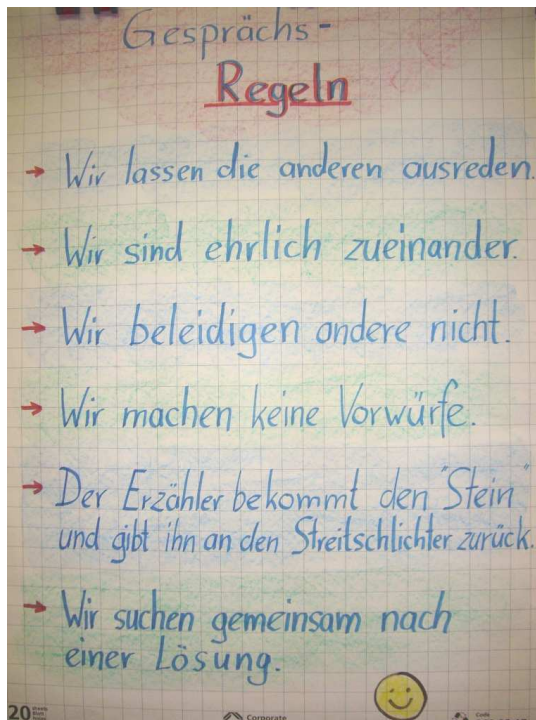 Gesprächs-
Regeln
→ Wir lassen die anderen ausreden.
→ Wir sind ehrlich zueinander.
→ Wir beleidigen andere nicht.
→ Wir machen keine Vorwürfe.
→ Der Erzähler bekommt den "Stein"
und gibt ihn an den Streitschlichter zurück.
→ Wir suchen gemeinsam nach
einer Lösung.
20 Corporate Code